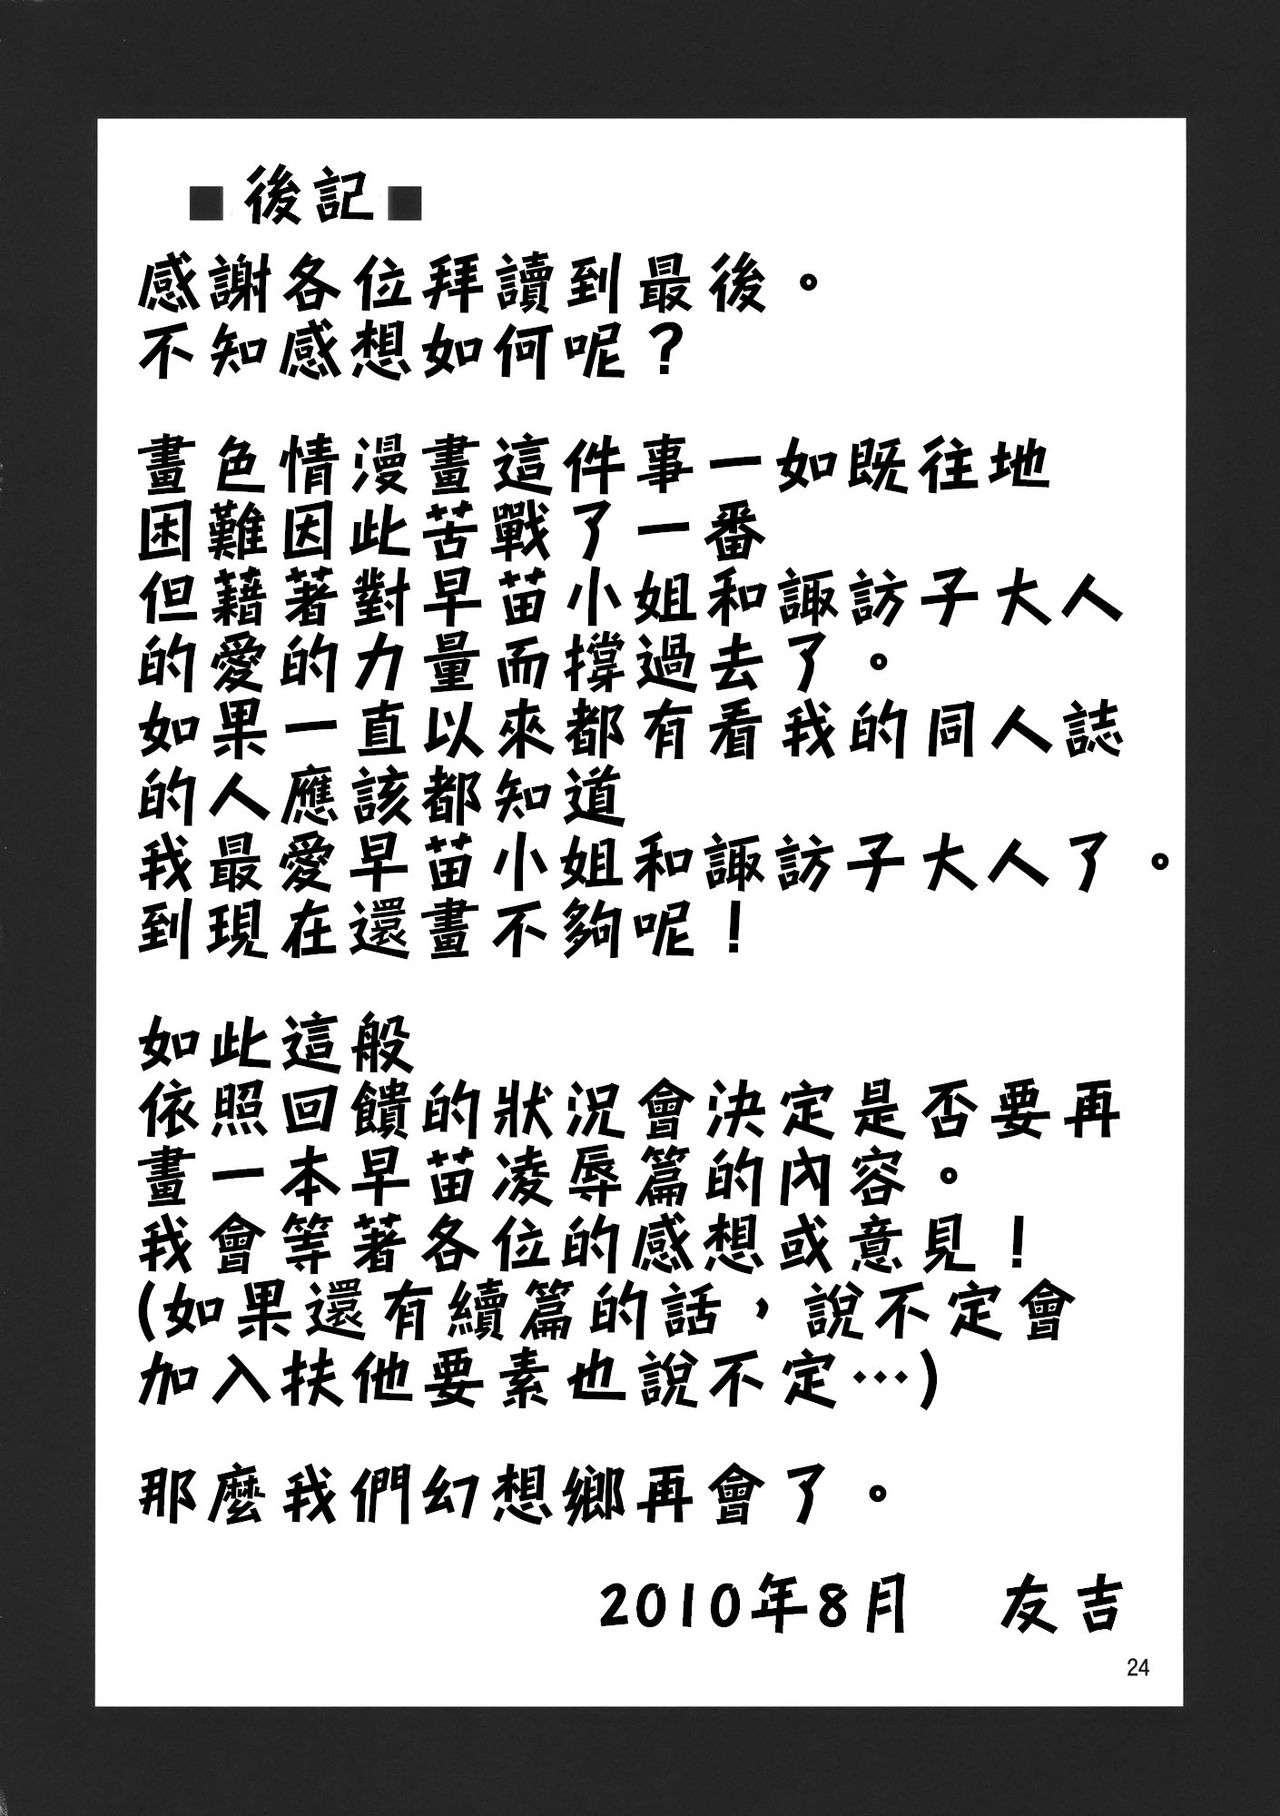 ■後記■
感謝各位拜讀到最後。
不知感想如何呢？
畫色情漫畫這件事一如既往地
困難因此苦戰了一番
但藉著對早苗小姐和諏訪子大人
的愛的力量而撐過去了。
如果一直以來都有看我的同人誌
的人應該都知道
我最愛早苗小姐和諏訪子大人了。
到現在還畫不夠呢！
如此這般
依照回饋的狀況會決定是否要再
畫一本早苗凌辱篇的內容。
我會等著各位的感想或意見！
(如果還有續篇的話，說不定會
加入扶他要素也說不定…)
那麼我們幻想鄉再會了。
2010年8月　友吉
24